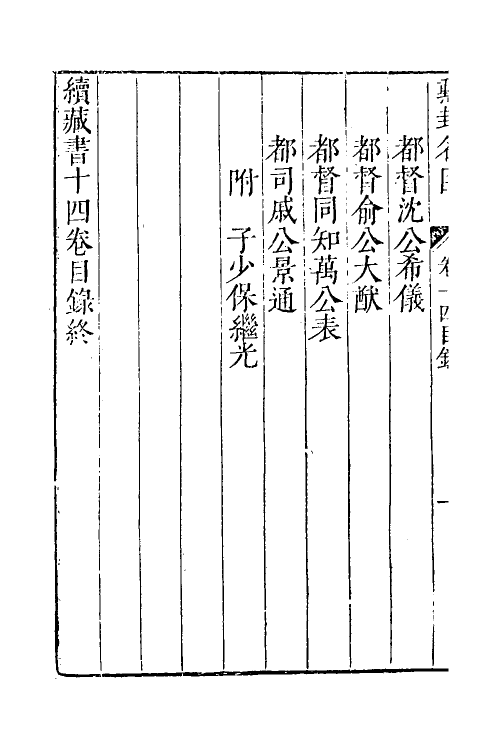 卷十四目錄
一
都督沈公希儀
都督俞公大猷
都督同知萬公表
都司戚公景通
附　子少保繼光
續藏書十四卷目錄終